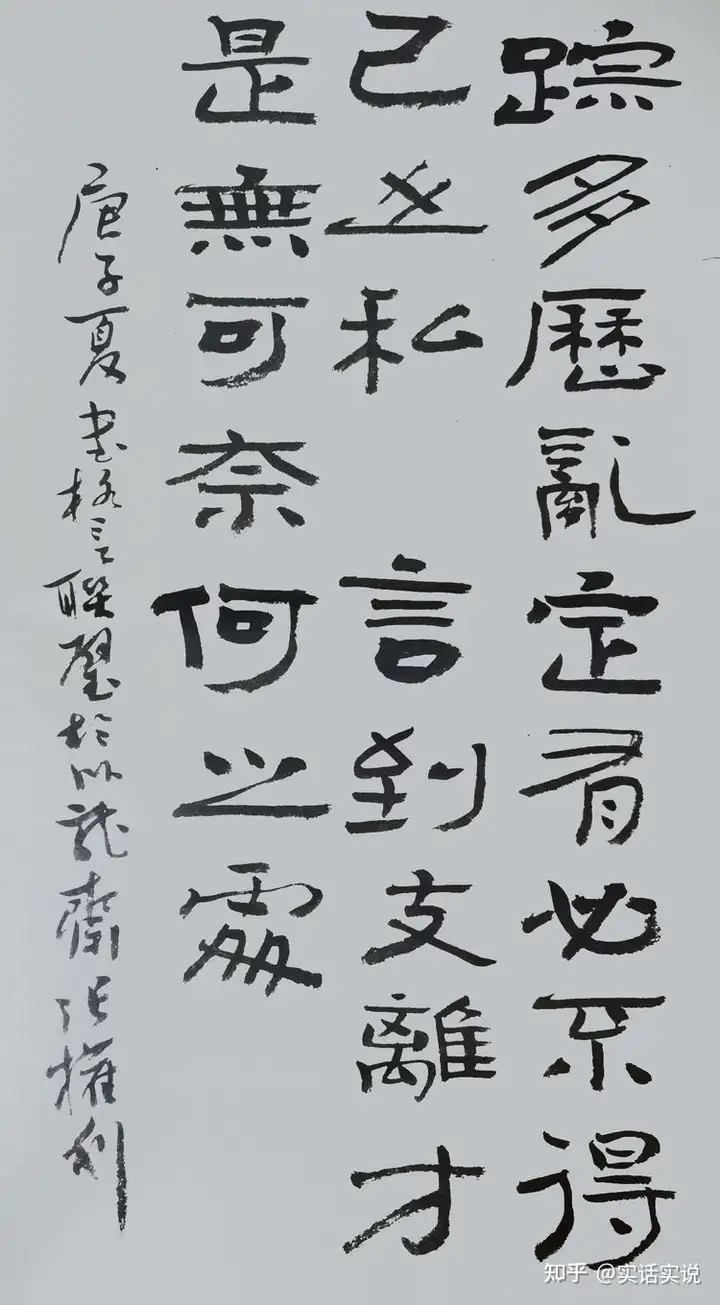 踪多歷亂定有必不得
已之私 言到支離才
是無可奈何之處
庚子夏書格言聯璧於龍齋張權利
知乎 @实话实说